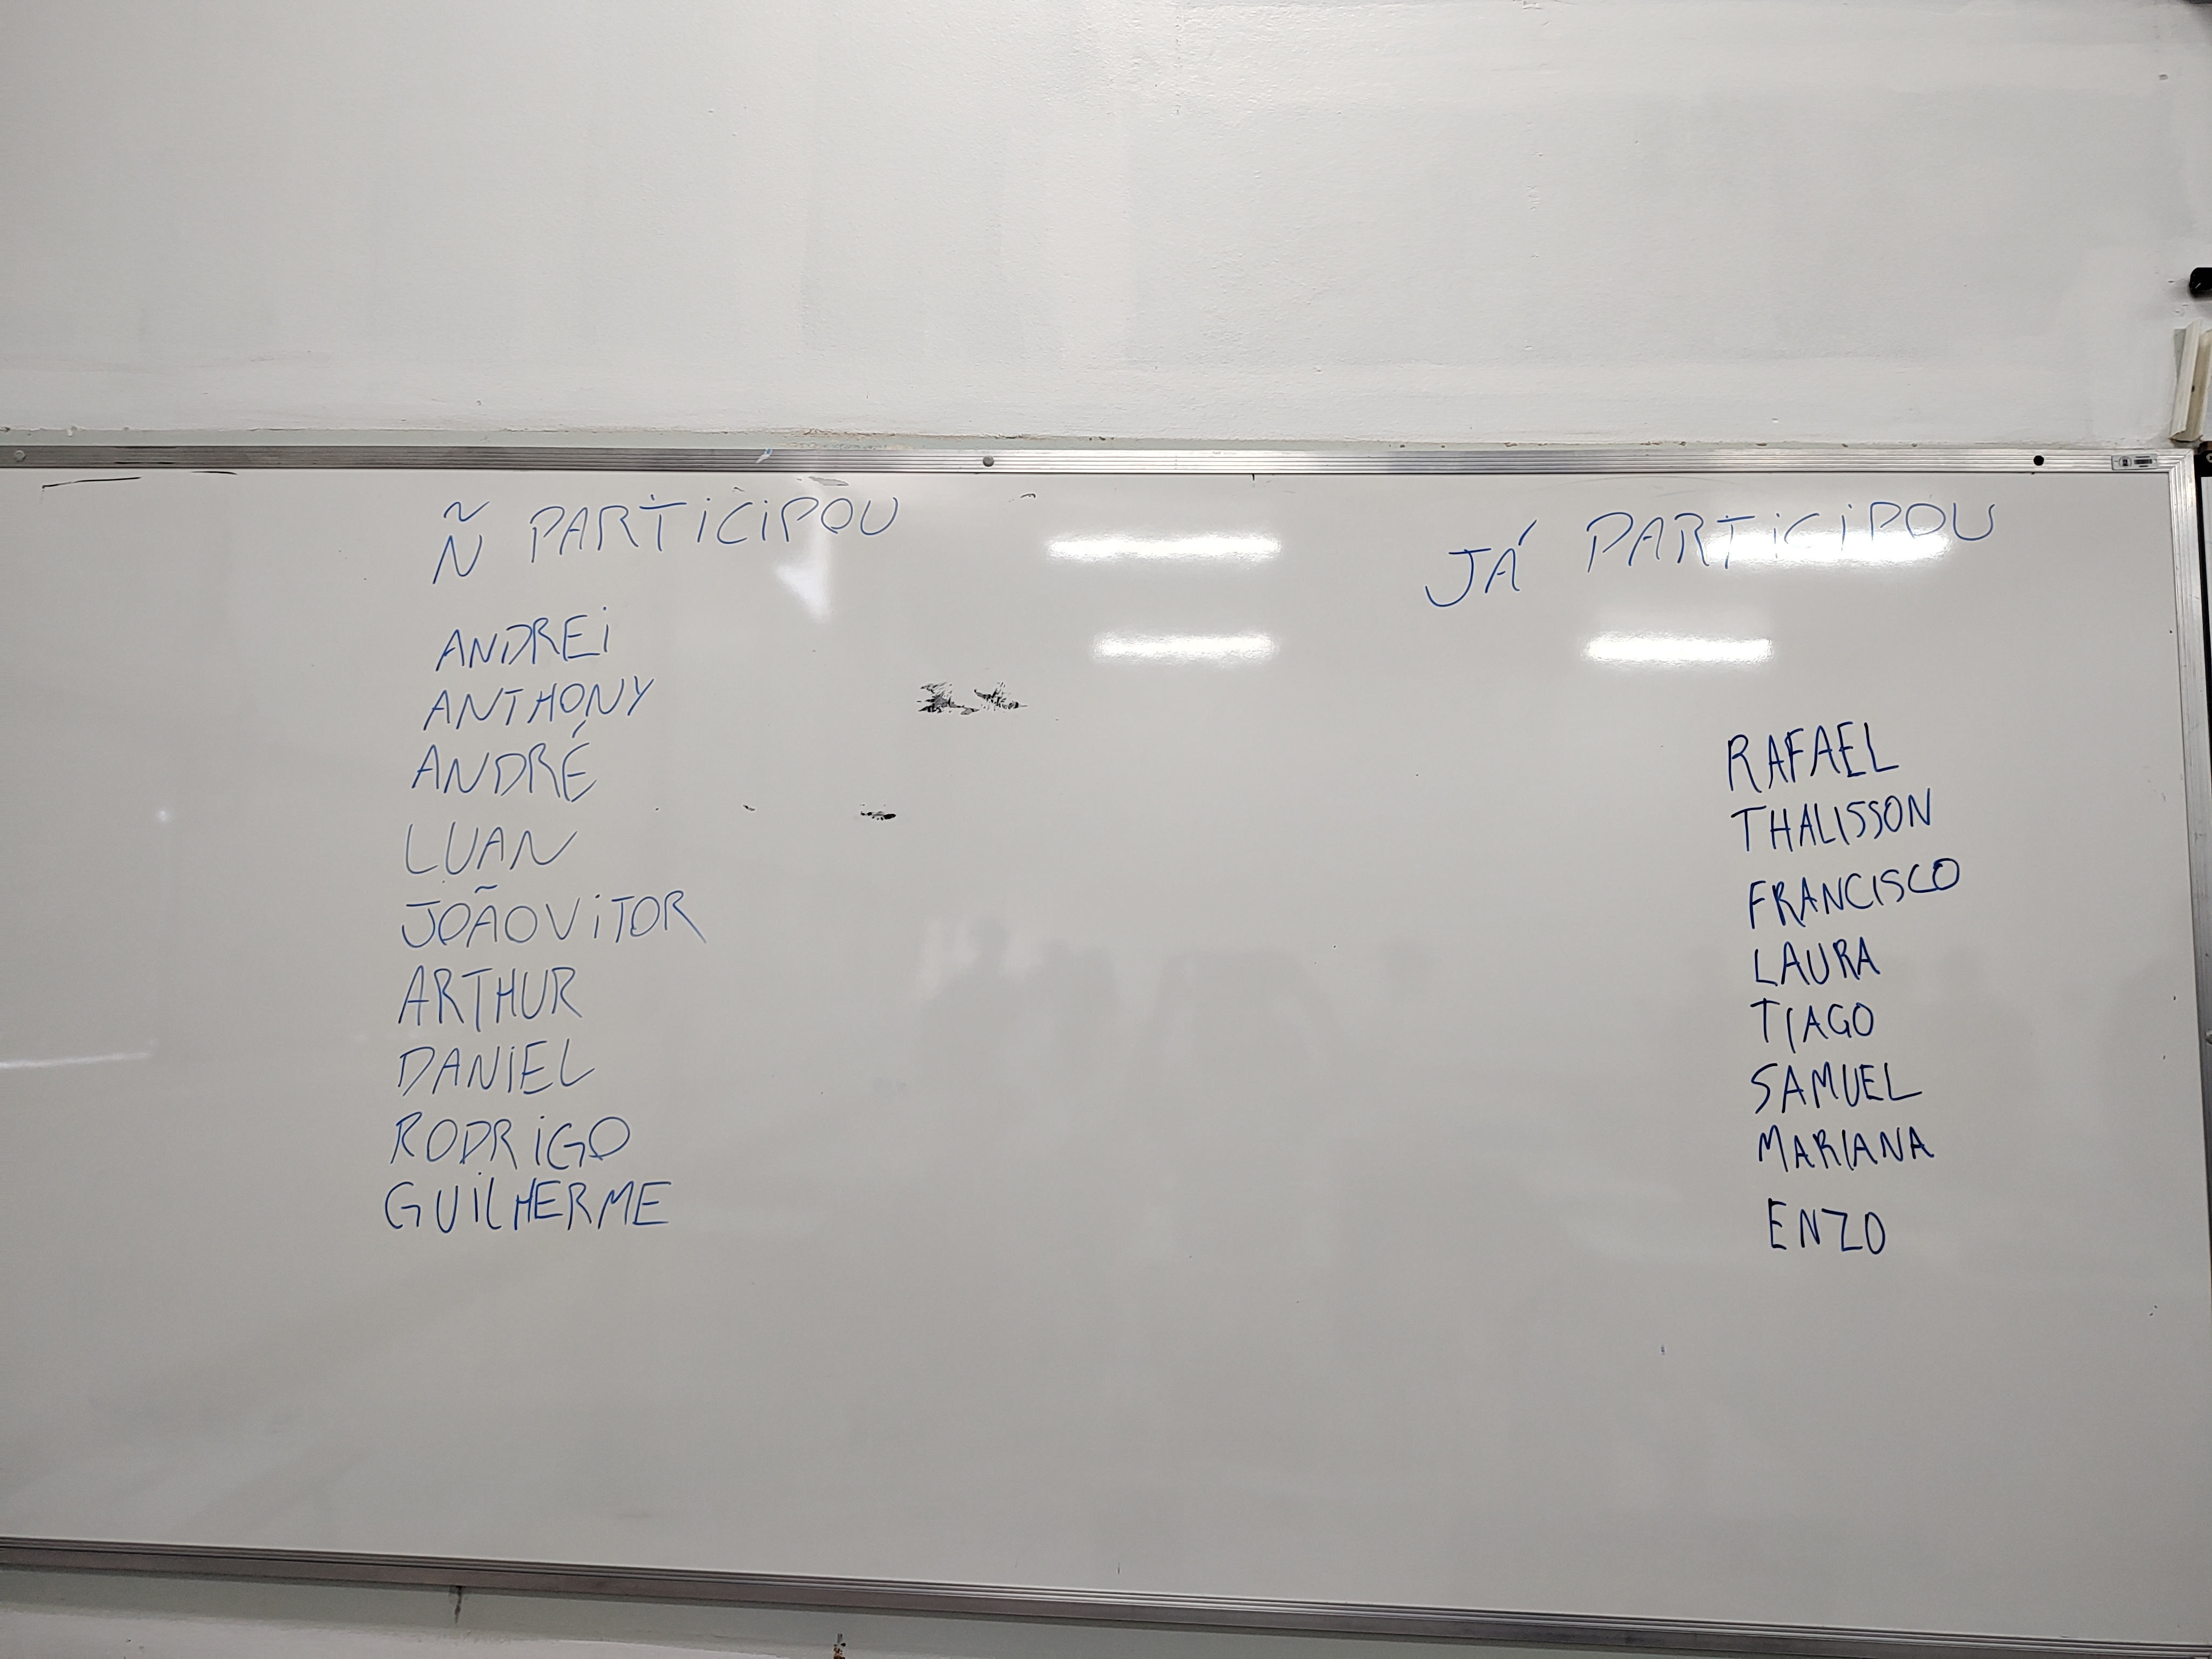 Ñ PARTiCiPOU
ANDREi
ANTHONY
ANDRÉ
LUAN
JOÃO ViTOR
ARTHUR
DANiEL
RODRiGO
GUiLHERME
JÁ PARTiCiPOU
RAFAEL
THALISSON
FRANCISCO
LAURA
TIAGO
SAMUEL
MARIANA
ENZO